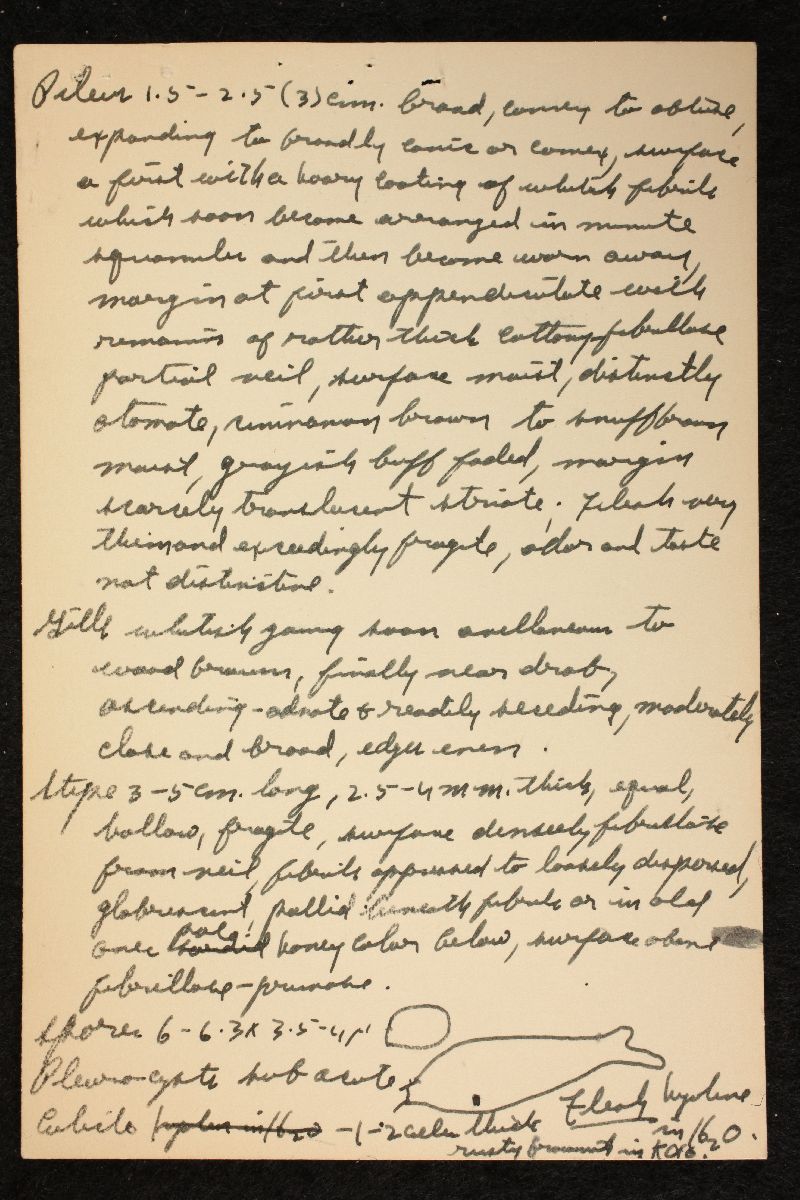 Pileus 1.5-2.5 (3) cm. broad, convex to obtuse,
expanding to broadly conic or convex, surface
a first with a hoary coating of whitish fibrils
which soon become arranged in minute
squamules and then become worn away,
margin at first appendiculate with
remains of rather thick cottony-fibrillose
partial veil, surface moist, distinctly
atomate, cinnamon brown to snuff brown
moist, grayish buff faded, margin
scarcely translucent striate. Flesh very
thin and exceedingly fragile, odor and taste
not distinctive.
Gills whitish young soon avellaneous to
wood brown, finally near drab,
ascending-adnate & readily seceding, moderately
close and broad, edges even.
Stipe 3-5 cm. long, 2.5-4 mm. thick, equal,
hollow, fragile, surface densely fibrillose
from veil, fibrils appressed to loosely dispersed,
glabrescent, pallid beneath fibrils or in old
ones pale sordid honey color below, surface above
fibrillose-pruinose.
Spores 6-6.3 x 3.5-4 µ
Pleurocysts subacute
Cuticle hyaline in H2O -1-2 cells thick Flesh hyaline
in H2O.
rusty brownish in KOH.